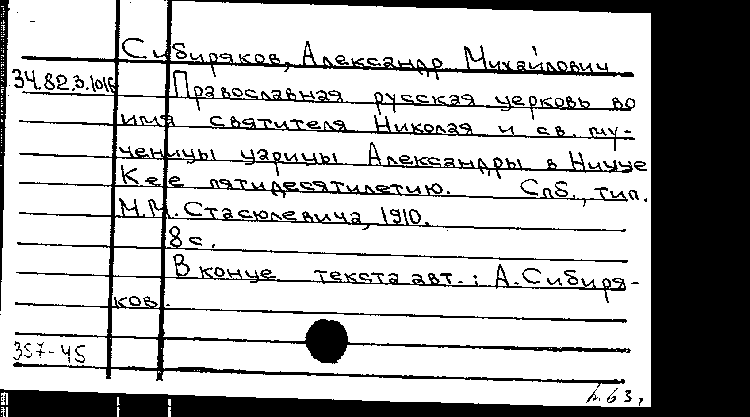 Сибиряков, Александр Михайлович
34.82.3.1016
Православная русская церковь во
имя святителя Николая и св. му-
ченицы царицы Александры в Ницце
К ее пятидесятилетию. Спб., тип.
М.М. Стасюлевича, 1910.
8 с.
В конце текста авт.: А. Сибиря-
ков.
357-45